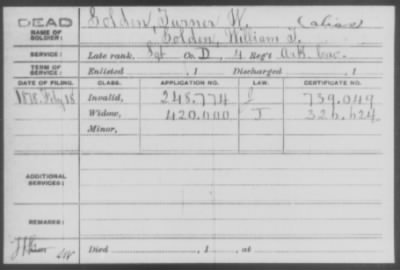 DEAD
NAME OF SOLDIER: Golden, Turner W. (alias)
Golden, William T.
SERVICE: Late rank, Sgt Co. D, 4 Reg't Ark. Cav.
TERM OF SERVICE: Enlisted , 1 Discharged , 1
DATE OF FILING. CLASS. APPLICATION NO. LAW. CERTIFICATE NO.
1878 Feby 18 Invalid, 248.774 739.049
Widow, 420.000 326.624
Minor,
ADDITIONAL SERVICES:
REMARKS:
Died , 1 , at